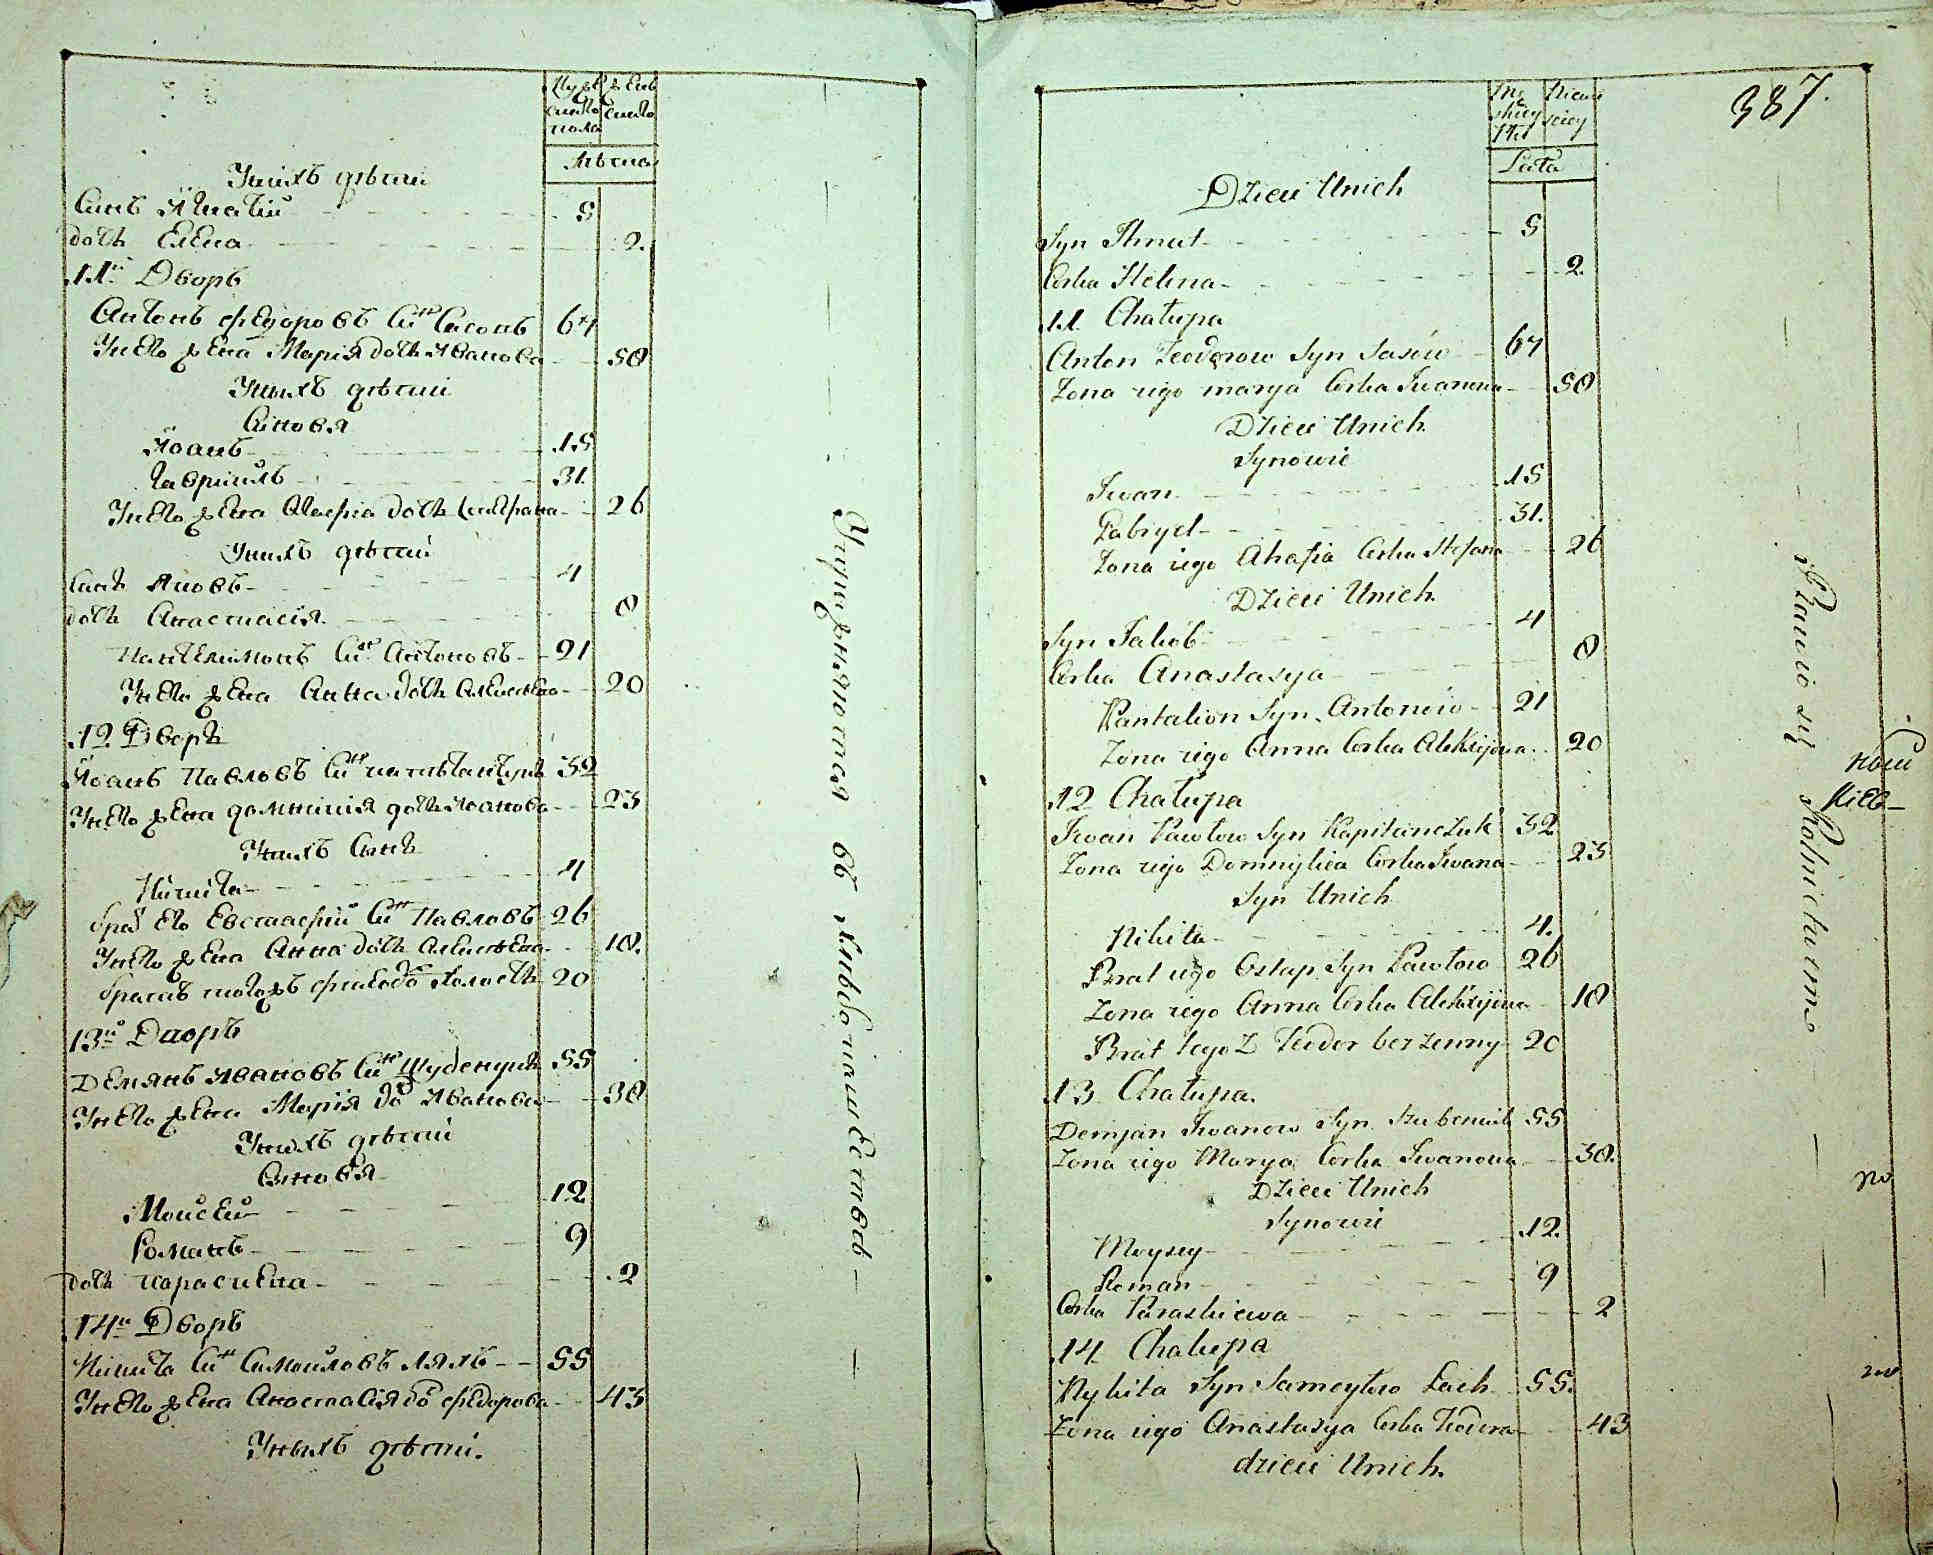 Мужеска пола
Женска
Лѣта
Унихъ дѣти
Синъ Игнатій 5
дочь Елена 2.
11й Дворъ
Антонъ Федоровъ Синъ Сасовъ 64
Унего жена Марія дочь Иванова 50
Унихъ дѣти
Синовя
Иоанъ 15
Гавриилъ 31.
Унего жена Агафіа дочь 26
Унихъ дѣти
Синъ Яковъ 4
дочь Анастасія 0
Пантелимонъ Синъ Антоновъ 21
Унего жена Анна дочь Алексѣева 20
12 Дворъ
Иоанъ Павловъ Синъ 32
Унего жена домникія дочь Иоанова 23
Унихъ Синъ
Никита 4
братъ его Евстафий Синъ Павловъ 26
Унего жена Анна дочь Алексѣева 18.
братъ тогожъ Фиодоръ Холостъ 20
13й Дворъ
Демянъ Ивановъ Синъ Шубенукъ 55
Унего жена Марія до Иванова 30
Унихъ дѣти
Синовя
Моисей 12
Романъ 9
дочь параскева 2
14й Дворъ
Никита Синъ Самойловъ Ляхъ 55
Унего жена Анастасія до Федорова 43
Унихъ дѣти.
Упражняются въ хлѣбопашествѣ
387.
Męskiey Płci
Niewiesciey
Lata
Dzieci Unich
Syn Ihnat 5
Corka Helena 2
11 Chałupa
Anton Teodorow Syn Sasów 64
Zona iego marya Corka Iwanowa 50
Dzieci Unich
Synowie
Iwan 15
Gabryel 31.
Zona iego Ahafia Corka Stefana 26
Dzieci Unich
Syn Jakób 4
Corka Anastasya 0
Pantalion Syn Antonów 21
Zona iego Anna Corka Aleksijowa 20
12 Chałupa
Iwan Pawłow Syn Kapitanczuk 32
Zona iego Domnykia Corka Iwana 23
Syn Unich
Nikita 4.
Brat iego Ostap Syn Pawłow 26
Zona iego Anna Corka Aleksijowa 18
Brat tego Z Teodor bez zenny 20
13 Chałupa.
Demjan Iwanow Syn Szubeniuk 55
Zona iego Marya Corka Iwanowa 30.
Dzieci Unich
Synowie
Moysey 12.
Roman 9
Corka Paraskiewa 2
14 Chałupa
Nykita Syn Samoyłow Lach 55.
Zona iego Anastasya Corka Teodora 43
dzieci Unich.
Bawio się Rolnictwem